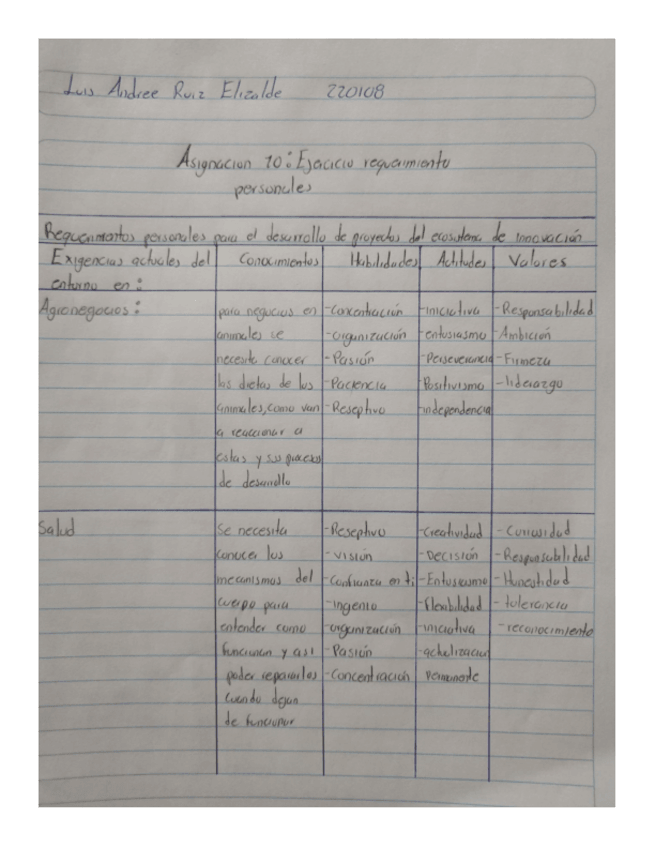 Luis Andree Ruiz Elizalde 220108
Asignacion 10: Ejercicio requerimiento
personales
Requerimientos personales para el desarrollo de proyectos del ecosistema de innovación
Exigencias actuales del
entorno en:
Conocimientos
Habilidades
Actitudes
Valores
Agronegocios:
para negocios en
animales se
necesita conocer
las dietas de los
animales, como van
a reaccionar a
estas y sus procesos
de desarrollo
-Concentración
-organización
-Pasión
-Paciencia
-Reseptivo
-iniciativa
-entusiasmo
-Perseverancia
Positivismo
-independencia
-Responsabilidad
-Ambición
-Firmeza
-liderazgo
Salud
Se necesita
conocer los
mecanismos del
cuerpo para
entender como
funcionan y asi
poder repararlos
cuando dejan
de funcionar
-Reseptivo
-visión
-Confianza en ti
-ingenio
-organización
-Pasión
-Concentración
-Creatividad
-Decisión
-Entusiasmo
-flexibilidad
-iniciativa
Permanente
-Curiosidad
-Responsabilidad
-Honestidad
-tolerancia
-reconocimiento